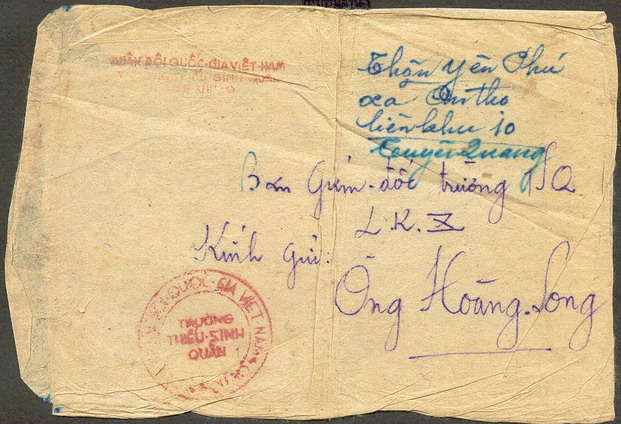 QUÂN ĐỘI QUỐC-GIA VIỆT-NAM
TRƯỜNG THIẾU SINH QUÂN
Thôn Yên Phú
xã
liên khu 10
Tuyên Quang
Ban Giám-đốc trường TSQ
L.K.X
Kính gửi:
Ông Hoàng-Long
QUỐC-GIA VIỆT NAM
TRƯỜNG
THIẾU-SINH
QUÂN